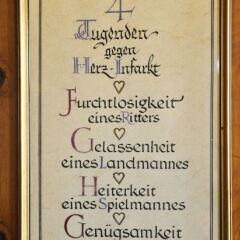 4
Tugenden
gegen
Herz-Infarkt
Furchtlosigkeit
eines Ritters
Gelassenheit
eines Landmannes
Heiterkeit
eines Spielmannes
Genügsamkeit